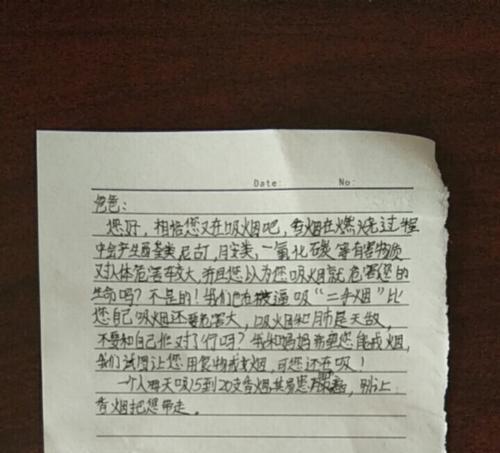 Date: No:
爸爸：
您好，相信您又在吸烟吧，香烟在燃烧过程
中会产生醛类、尼古丁、胺类、一氧化石炭等有害物质
对人体危害较大，并且您以为您吸烟就危害您的
生命吗？不是的！我们也在被逼吸“二手烟”比
您自己吸烟还要危害大，吸烟和肺是天敌，
不要和自己作对行吗？我和妈妈希望您能戒烟，
我们试图让您用食物戒烟，可您还在吸！
一个人每天吸15到20支香烟其易患，别让
香烟把您带走。